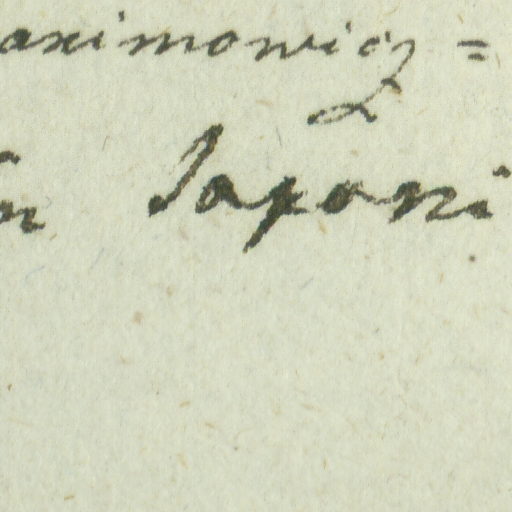 aximowicz =
in Japoni